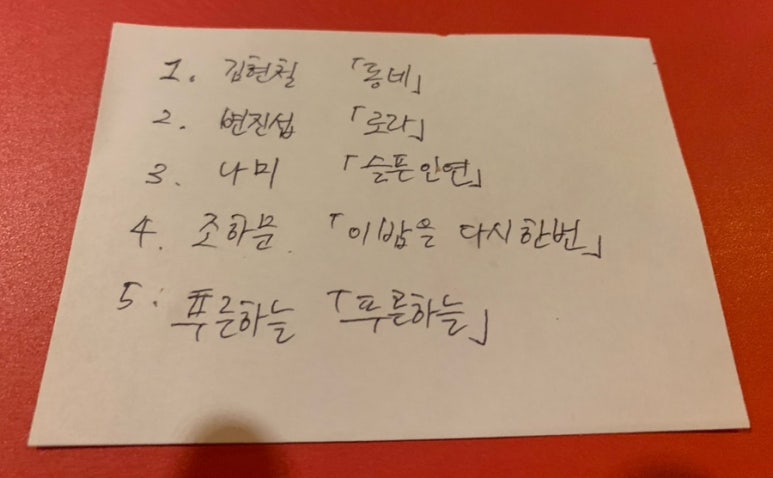 1. 김현철 「동네」
2. 변진섭 「로라」
3. 나미 「슬픈인연」
4. 조하문 「이밤은 다시한번」
5. 푸른하늘 「푸른하늘」